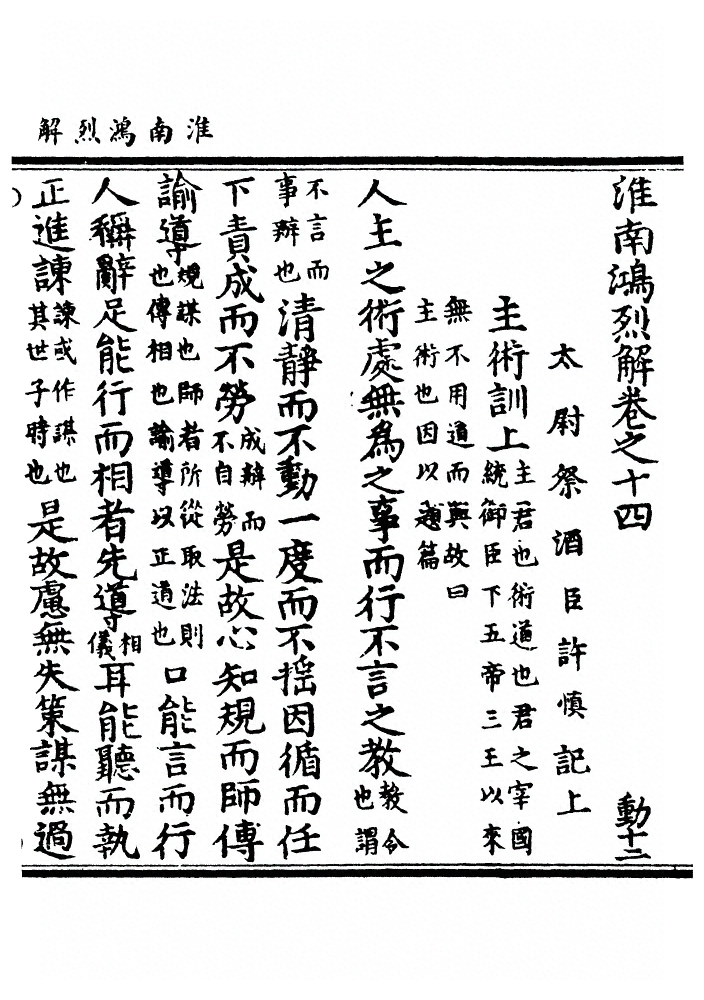 淮南鴻烈解
淮南鴻烈解卷之十四 動十二
太尉祭酒臣許慎記上
主術訓上 主君也術道也君之宰國統御臣下五帝三王以來
無不用道而興故曰主術也因以題篇
人主之術處無為之事而行不言之教 教令也謂
不言而事辦也 清靜而不動一度而不搖因循而任
下責成而不勞 成辦而不自勞 是故心知規而師傅
諭導 規謀也師者所從取法則也傅相也諭導以正道也 口能言而行
人稱辭足能行而相者先導 相儀 耳能聽而執
正進諫 諫或作謀也其世子時也 是故慮無失策謀無過